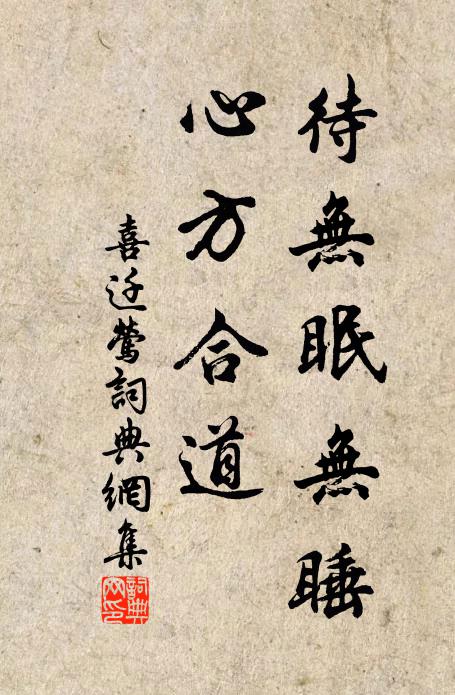 待無眠無睡
心方合道
喜迁鶯詞典網集
詞典
网印